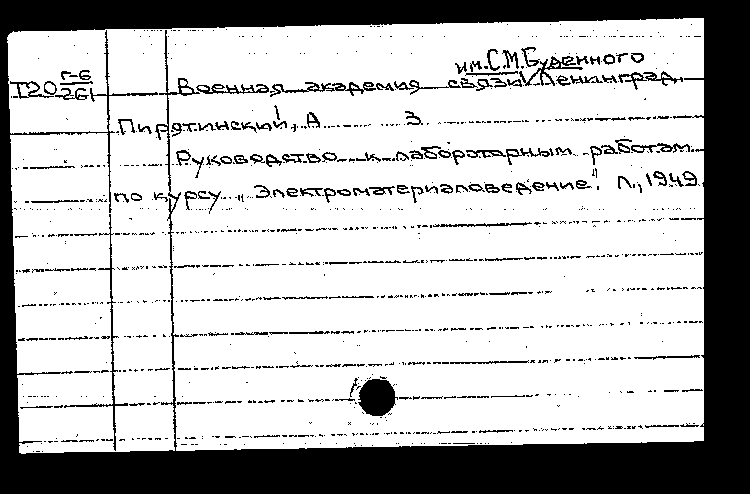 им. С.М. Буденного
Т20 Г-6/261 Военная академия связи Ленинград.
Пирятинский, А З.
Руководство к лабораторным работам
по курсу „Электроматериаловедение". Л., 1949.